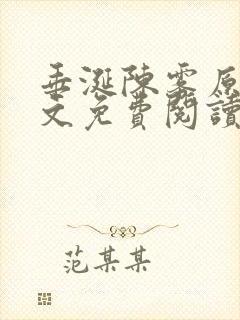 垂涎陳霧原
文免費閱讀
范某某